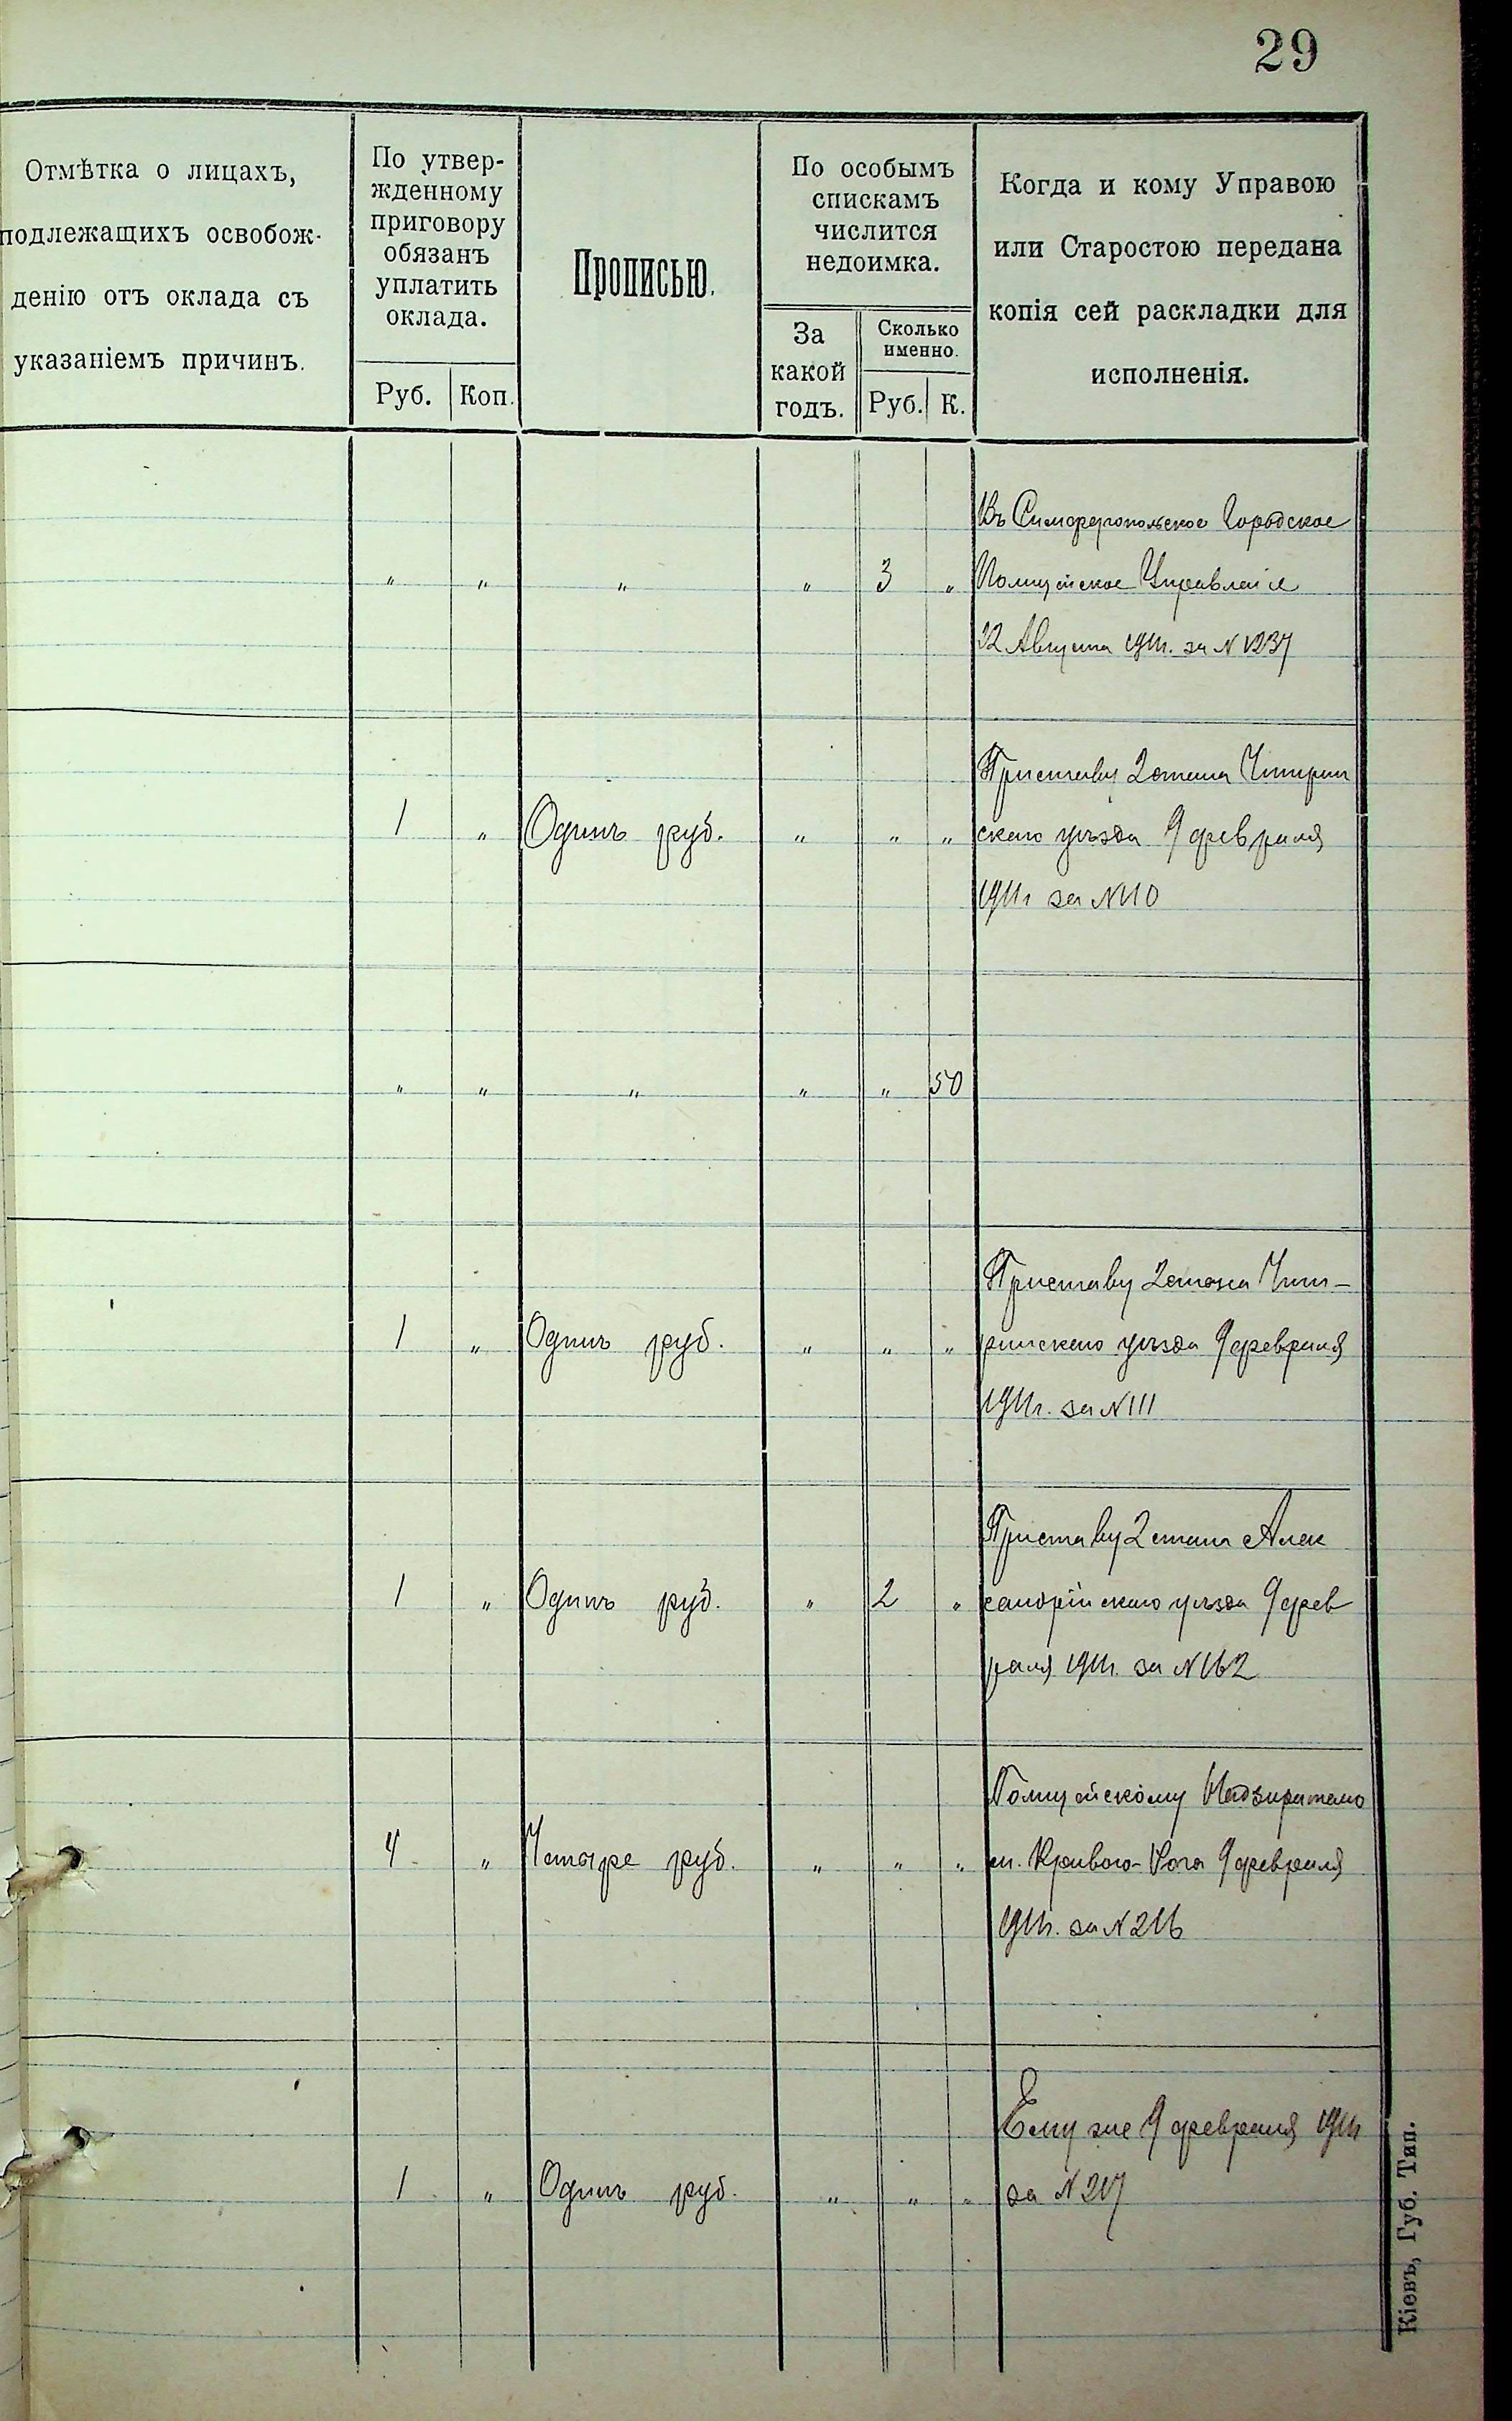 29
Отмѣтка о лицахъ,
подлежащихъ освобож-
денію отъ оклада съ
указаніемъ причинъ.
По утвер-
жденному
приговору
обязанъ
уплатить
оклада.
Руб. Коп.
Прописью.
По особымъ
спискамъ
числится
недоимка.
За
какой
годъ.
Сколько
именно.
Руб. К.
Когда и кому Управою
или Старостою передана
копія сей раскладки для
исполненія.
Въ Симферопольское Городское
" " " " 3 " Полицейское Управленіе
Августа 1911г. за N 1237
Приставу 2 стана Чигирин
1 " Одинъ руб. " " " скаго уѣзда 9 февраля
1911г за N 110
" " " " " 50
Приставу 2 стана Чиги-
1 " Одинъ руб. " " " ринскаго уѣзда 9 февраля
1911г. за N 111
Приставу 2 стана Алек
1 " Одинъ руб. " 2 " сандрійскаго уѣзда 9 фев
раля 1911г. за N 162
Полицейскому Надзирателю
4 " Четыре руб. " " " м. Кривого-Рога 9 февраля
1911г. за N 216
Ему же 9 февраля 1911г
1 " Одинъ руб. " " " за N 217
Кіевъ, Губ. Тип.